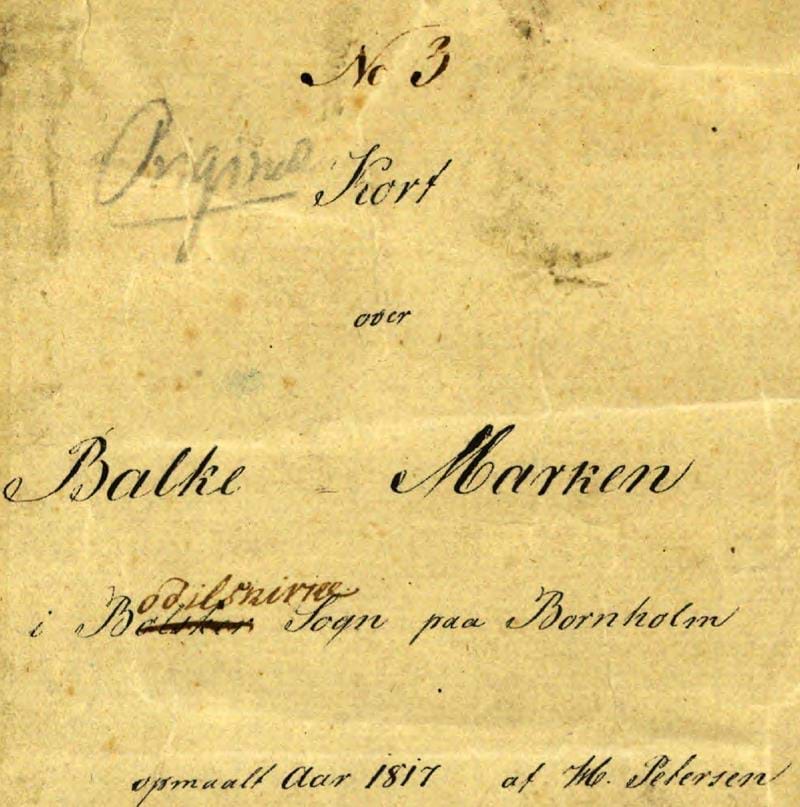 No 3
Original
Kort
over
Balke Marken
odilskirke
i Balsker Sogn paa Bornholm
opmaalt Aar 1817 af H. Petersen